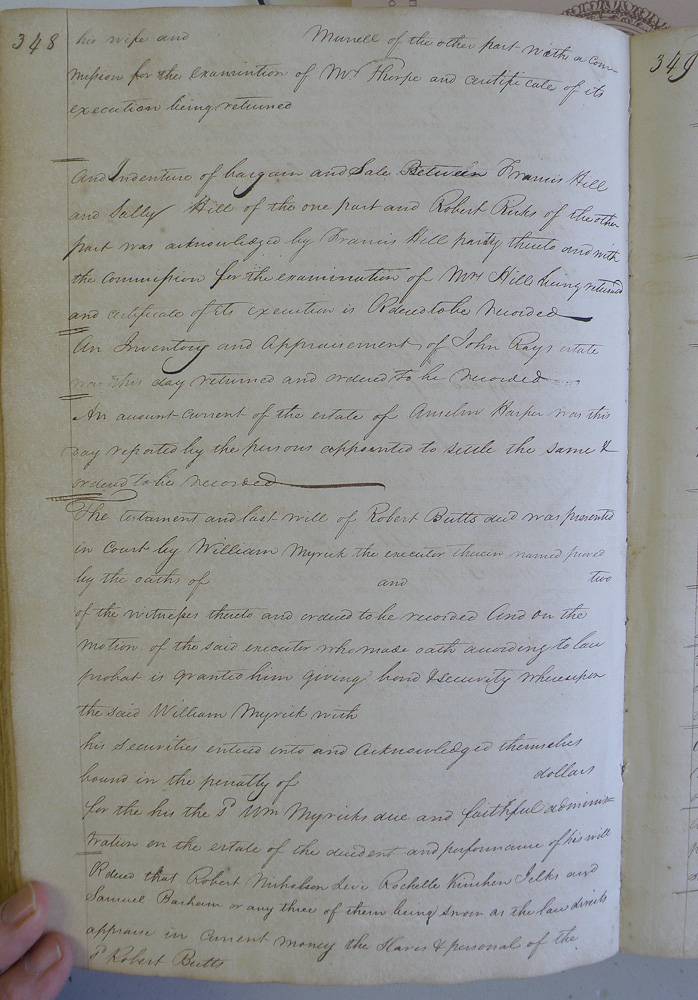 348
his wife and Murrell of the other part with a Com-
mission for the examination of Mrs Thorpe and certificate of its
execution being returned
And Indenture of bargain and Sale Between Francis Hill
and Sally Hill of the one part and Robert Ricks of the other
part was acknowledged by Francis Hill party thereto and with
the commission for the examination of Mrs Hill being returned
and certificate of its execution is Ordered to be recorded
An Inventory and Appraisement of John Rays estate
was this day returned and ordered to be recorded
An account current of the estate of Anselm Harper was this
day reported by the persons appointed to settle the same &
ordered to be recorded
The testament and last will of Robert Butts decd was presented
in Court by William Myrick the executor therein named proved
by the oaths of and two
of the witnesses thereto and ordered to be recorded And on the
motion of the said executor who made oath according to law
probat is granted him giving bond & security whereupon
the said William Myrick with
his securities entered into and acknowledged themselves
bound in the penalty of dollars
for the his the Sd Wm Myricks due and faithful adminis-
tration on the estate of the decedent and performance of his will
Ordered that Robert Nicholson Levi Rochelle Kinchen Jelks and
Samuel Barham or any three of them being sworn as the law directs
appraise in current money the slaves & personal of the
Sd Robert Butts
349